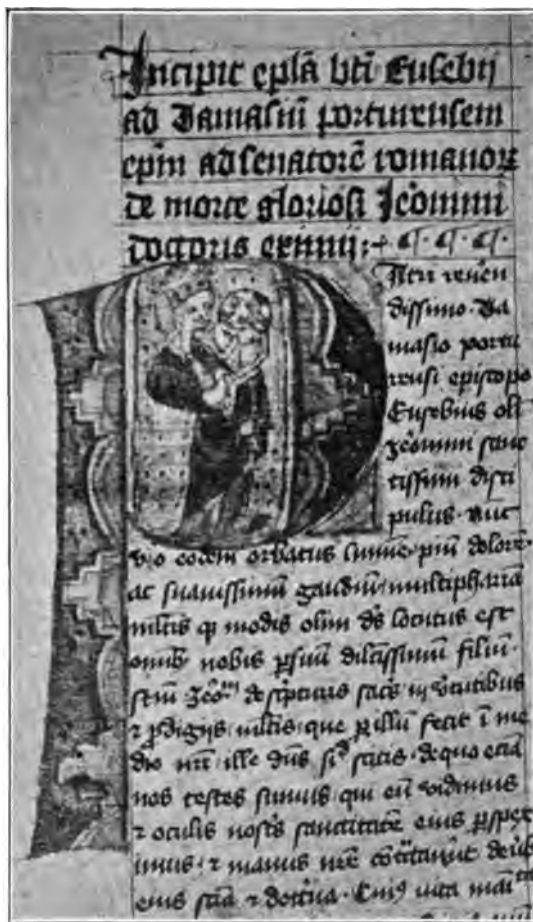 Incipit epl̄a bt̄i Eusebij
ad Damasiū portuensem
ep̄m ad senatorē romanoꝝ
de morte gloriosi Jeronimi
doctoris eximij:
Patri reueren
dissimo Da
masio portu
ensi episcopo
Eusebius oli
Jeronimi sanc
tissimi disci
pulus nūc
v̄o eodem orbatus lumine piū dolorē
ac suauissimū gaudiū multiphariā
mltis qꝫ modis olim dꝰs locutus est
omībꝫ nobis ꝑ suū dilc̄issimū filiū
Jero de sc̄pturis sac̄s in v̄tutibus
⁊ ꝓdigijs mltis que ꝑ illū fecit ī me
dio nr̄i ille dn̄s sic̄ scitis de quo eciā
nos testes sumus qui eū vidimus
⁊ oculis nost̄s sanctitatē eius ꝑspex
imus ⁊ manus nr̄e
eius sc̄ā ⁊ doct̄ina Cuiꝰ uita